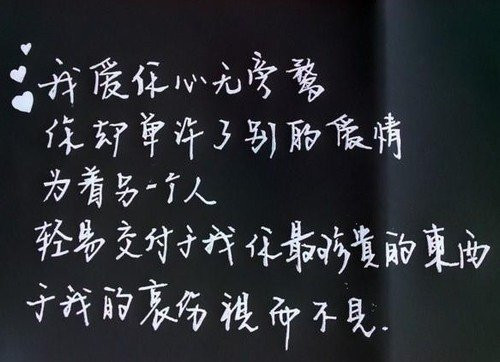 我爱你心无旁鹜
你却单许了别的爱情
为着另一个人
轻易交付于我你最珍貴的東西
于我的哀伤視而不見.